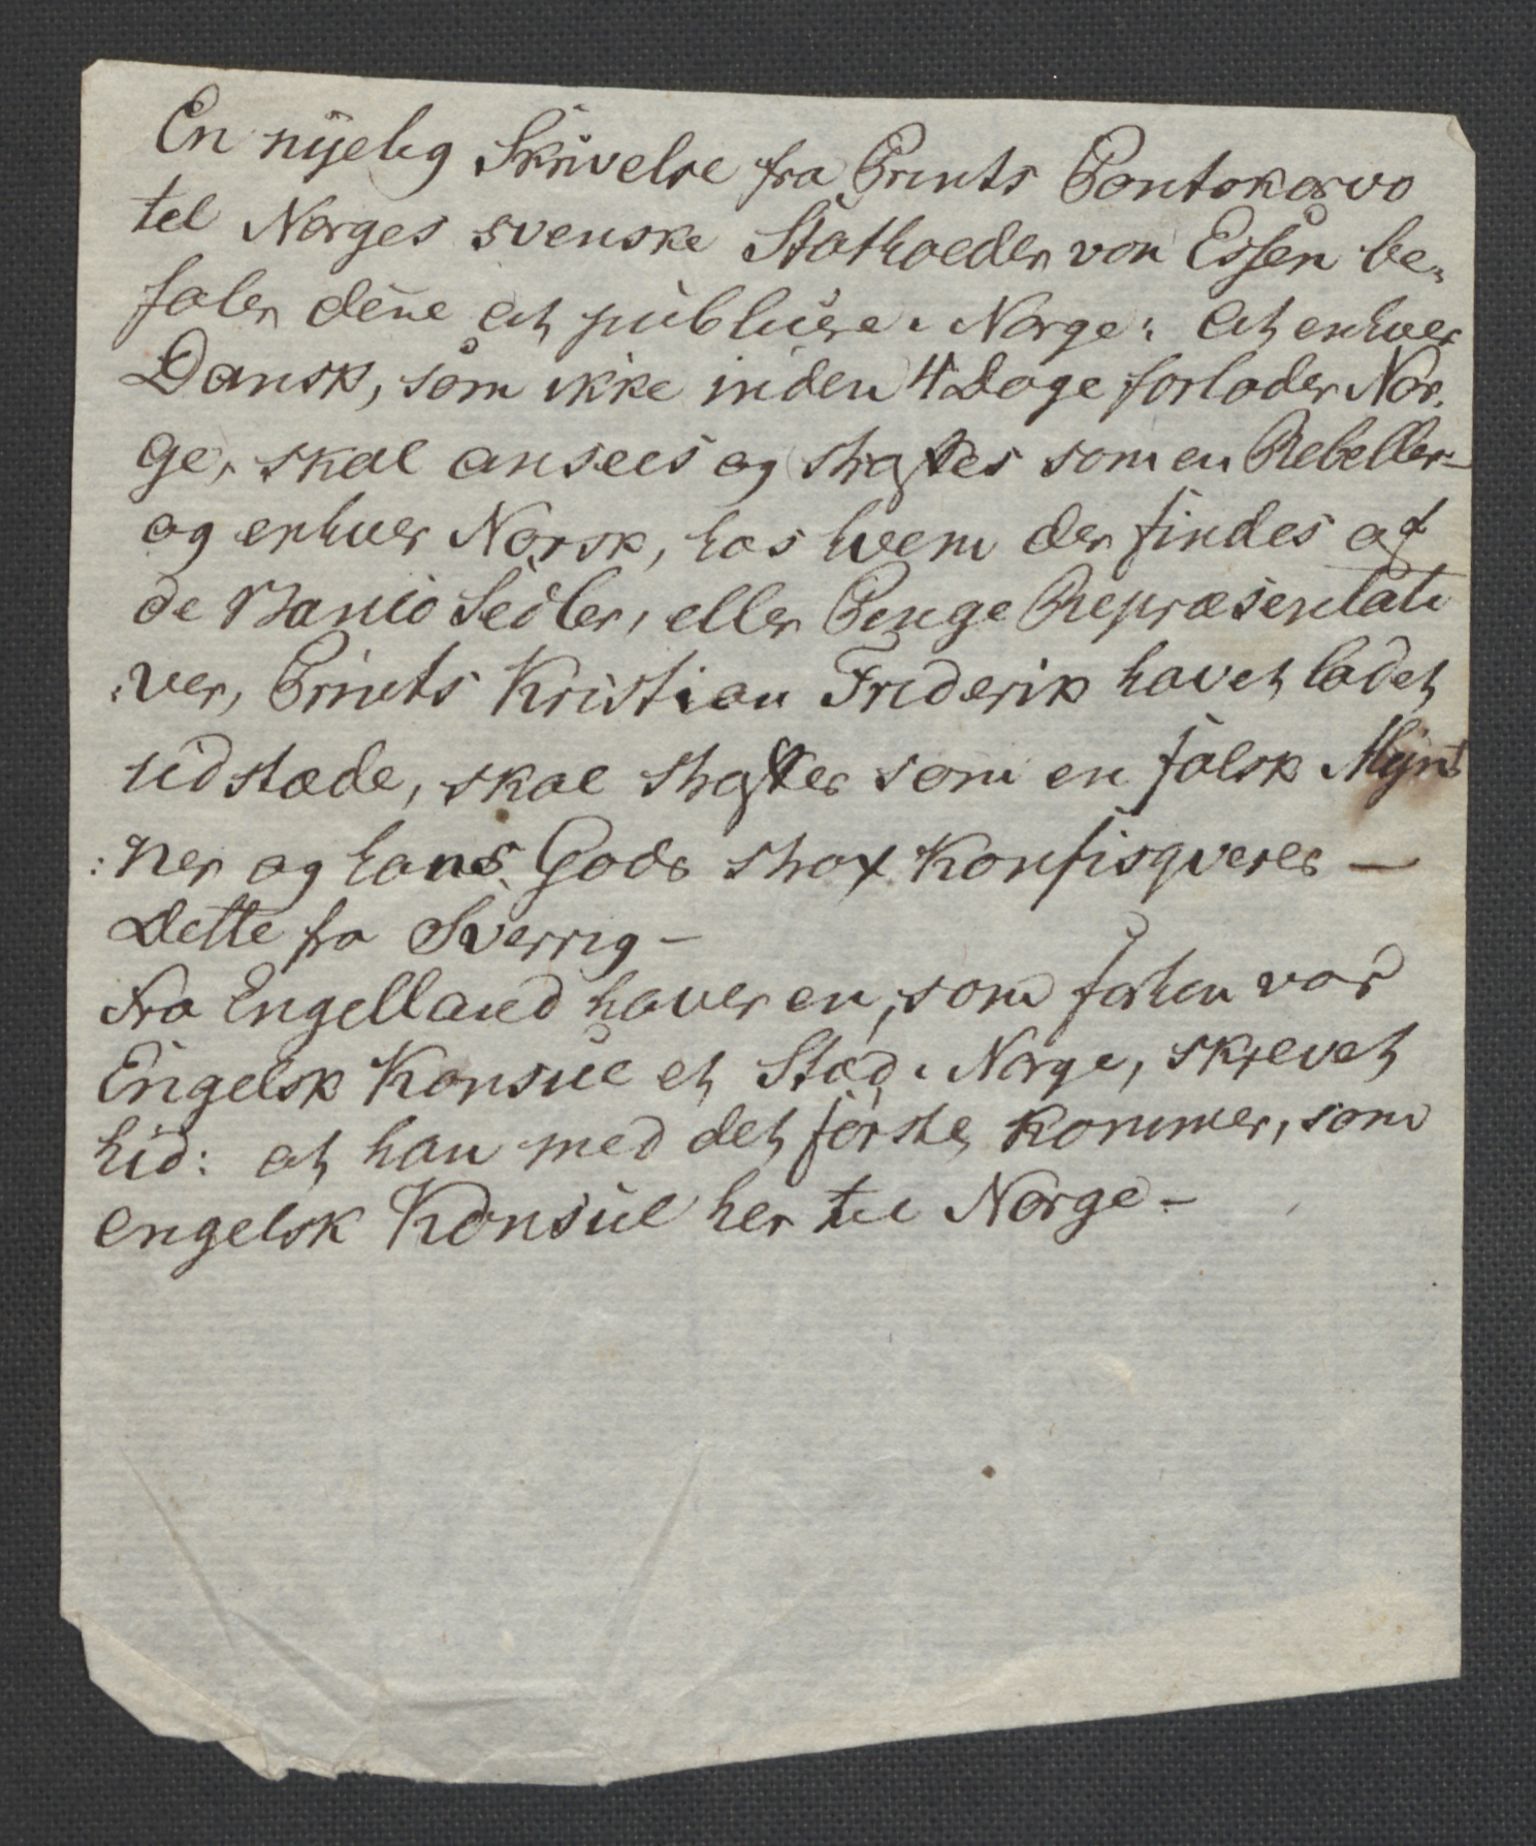 En nyelig Skrivelse fra Prints Pontokorvo
til Norges svenske Statholder von Essen be-
faler denne at publicere i Norge: At enhver
Dansk, som ikke inden 4 Dage forlader Nor-
ge, skal ansees og straffes som en Rebeller-
og enhver Norsk, hos hvem der findes af
de Banco Sedler, eller Penge Repræsentati
:ver, Prints Kristian Friderik havet ladet
udstæde, skal straffes som en falsk Mynt
:ner og hans Gods strax Konfisqveres —
Dette fra Sverrig —
Fra Engelland haver en, som forhen var
Engelsk Konsul et Stæd i Norge, skrevet
hid: at han med det første kommer, som
engelsk Konsul her til Norge —